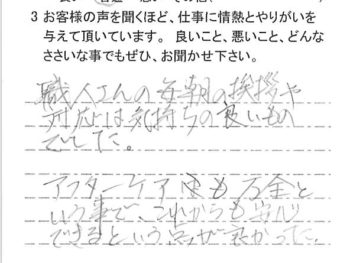 3 お客様の声を聞くほど、仕事に情熱とやりがいを
与えて頂いています。 良いこと、悪いこと、どんな
ささいな事でもぜひ、お聞かせ下さい。
職人さんの毎朝の挨拶や
対応は気持ちの良いもの
でした。
アフターケアも万全と
いう事で、これからも安心
できるという点が良かった。